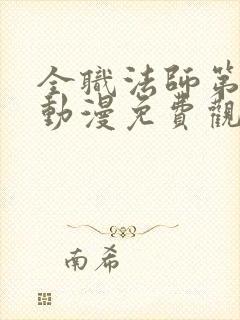 全職法師第
動漫免費觀
南希